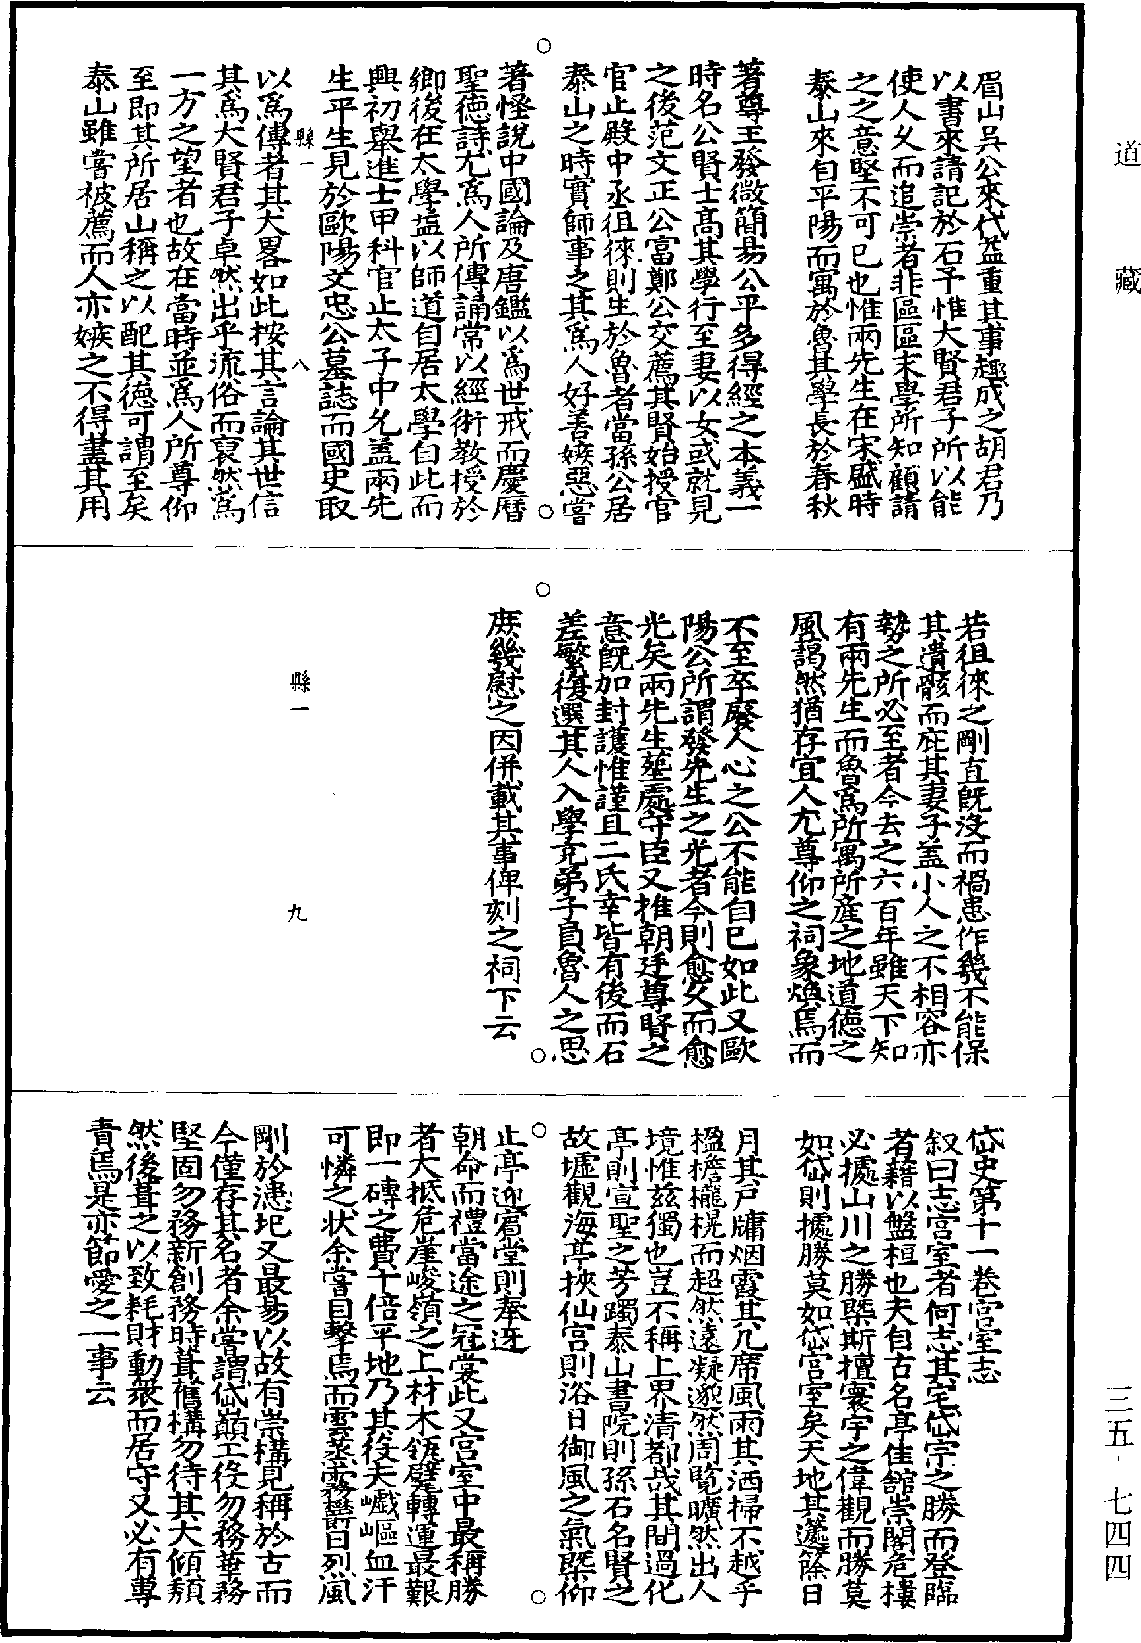 道藏
眉山吳公來代益重其事趣成之胡君乃
以書來請記於石予惟大賢君子所以能
使人久而追崇者非區區末學所知顧請
之之意堅不可已也惟兩先生在宋盛時
泰山來自平陽而寓於魯其學長於春秋
著尊王發微簡易公平多得經之本義一
時名公賢士高其學行至妻以女或就見
之後范文正公富鄭公交薦其賢始授官
官止殿中丞徂徠則生於魯者當孫公居
泰山之時實師事之其爲人好善嫉惡嘗
著怪說中國論及唐鑑以爲世戒而慶曆
聖德詩尤爲人所傳誦常以經術教授於
鄉後在太學益以師道自居太學自此而
興初舉進士甲科官止太子中允蓋兩先
生平生見於歐陽文忠公墓誌而國史取
縣一 八
以爲傳者其大畧如此按其言論其世信
其爲大賢君子卓然出乎流俗而裒然爲
一方之望者也故在當時並爲人所尊仰
至即其所居山稱之以配其德可謂至矣
泰山雖嘗被薦而人亦嫉之不得盡其用
若徂徠之剛直既沒而禍患作幾不能保
其遺骸而庇其妻子蓋小人之不相容亦
勢之所必至者今去之六百年雖天下知
有兩先生而魯爲所寓所產之地道德之
風藹然猶存宜人尤尊仰之祠象煥焉而
不至卒廢人心之公不能自已如此又歐
陽公所謂發先生之光者今則愈久而愈
光矣兩先生塋處守臣又推朝廷尊賢之
意既加封護惟謹且二氏幸皆有後而石
差繁復選其人入學充弟子員魯人之思
庶幾慰之因併載其事俾刻之祠下云
縣一 九
岱史第十一卷宮室志
叙曰志宮室者何志其宅岱宇之勝而登臨
者藉以盤桓也夫自古名亭佳館崇閣危樓
必據山川之勝槩斯擅寰宇之偉觀而勝莫
如岱則據勝莫如岱宮室矣天地其蘧餘日
月其戶牖烟霞其几席風雨其洒掃不越乎
楹檐櫳榥而超然遠凝邈然周覽曠然出人
境惟茲獨也豈不稱上界清都哉其間過化
亭則宣聖之芳躅泰山書院則孫石名賢之
故墟觀海亭挾仙宮則浴日御風之氣槩仰
止亭迎宮堂則奉迓
朝命而禮當途之冠裳此又宮室中最稱勝
者大抵危崖峻嶺之上材木瓴甓轉運最艱
即一磚之費十倍平地乃其役夫巇嶇血汗
可憐之狀余嘗目擊焉而雲蒸霧鬱日烈風
剛於漶圯又最易以故有崇構見稱於古而
今僅存其名者余嘗謂岱巔工役勿務華務
堅固勿務新創務時葺舊構勿待其大傾頹
然後葺之以致耗財動衆而居守又必有專
責焉是亦節愛之一事云
三五-七四四